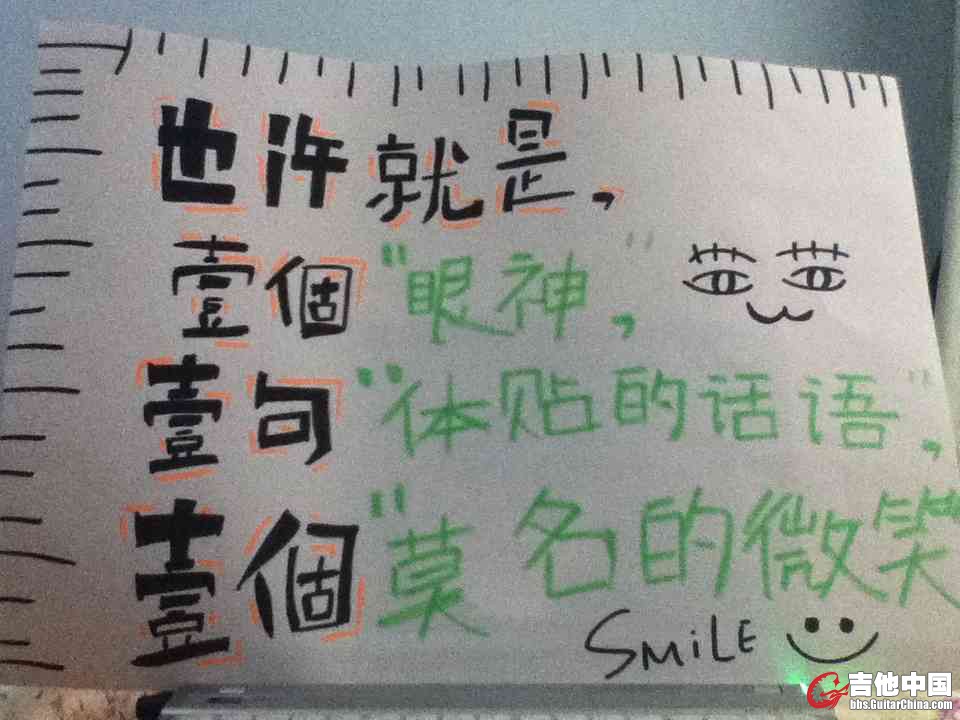 也许就是，
壹個“眼神，”
壹句“体贴的话语”，
壹個“莫名的微笑
SMiLE
吉他中国
bbs.GuitarChina.com